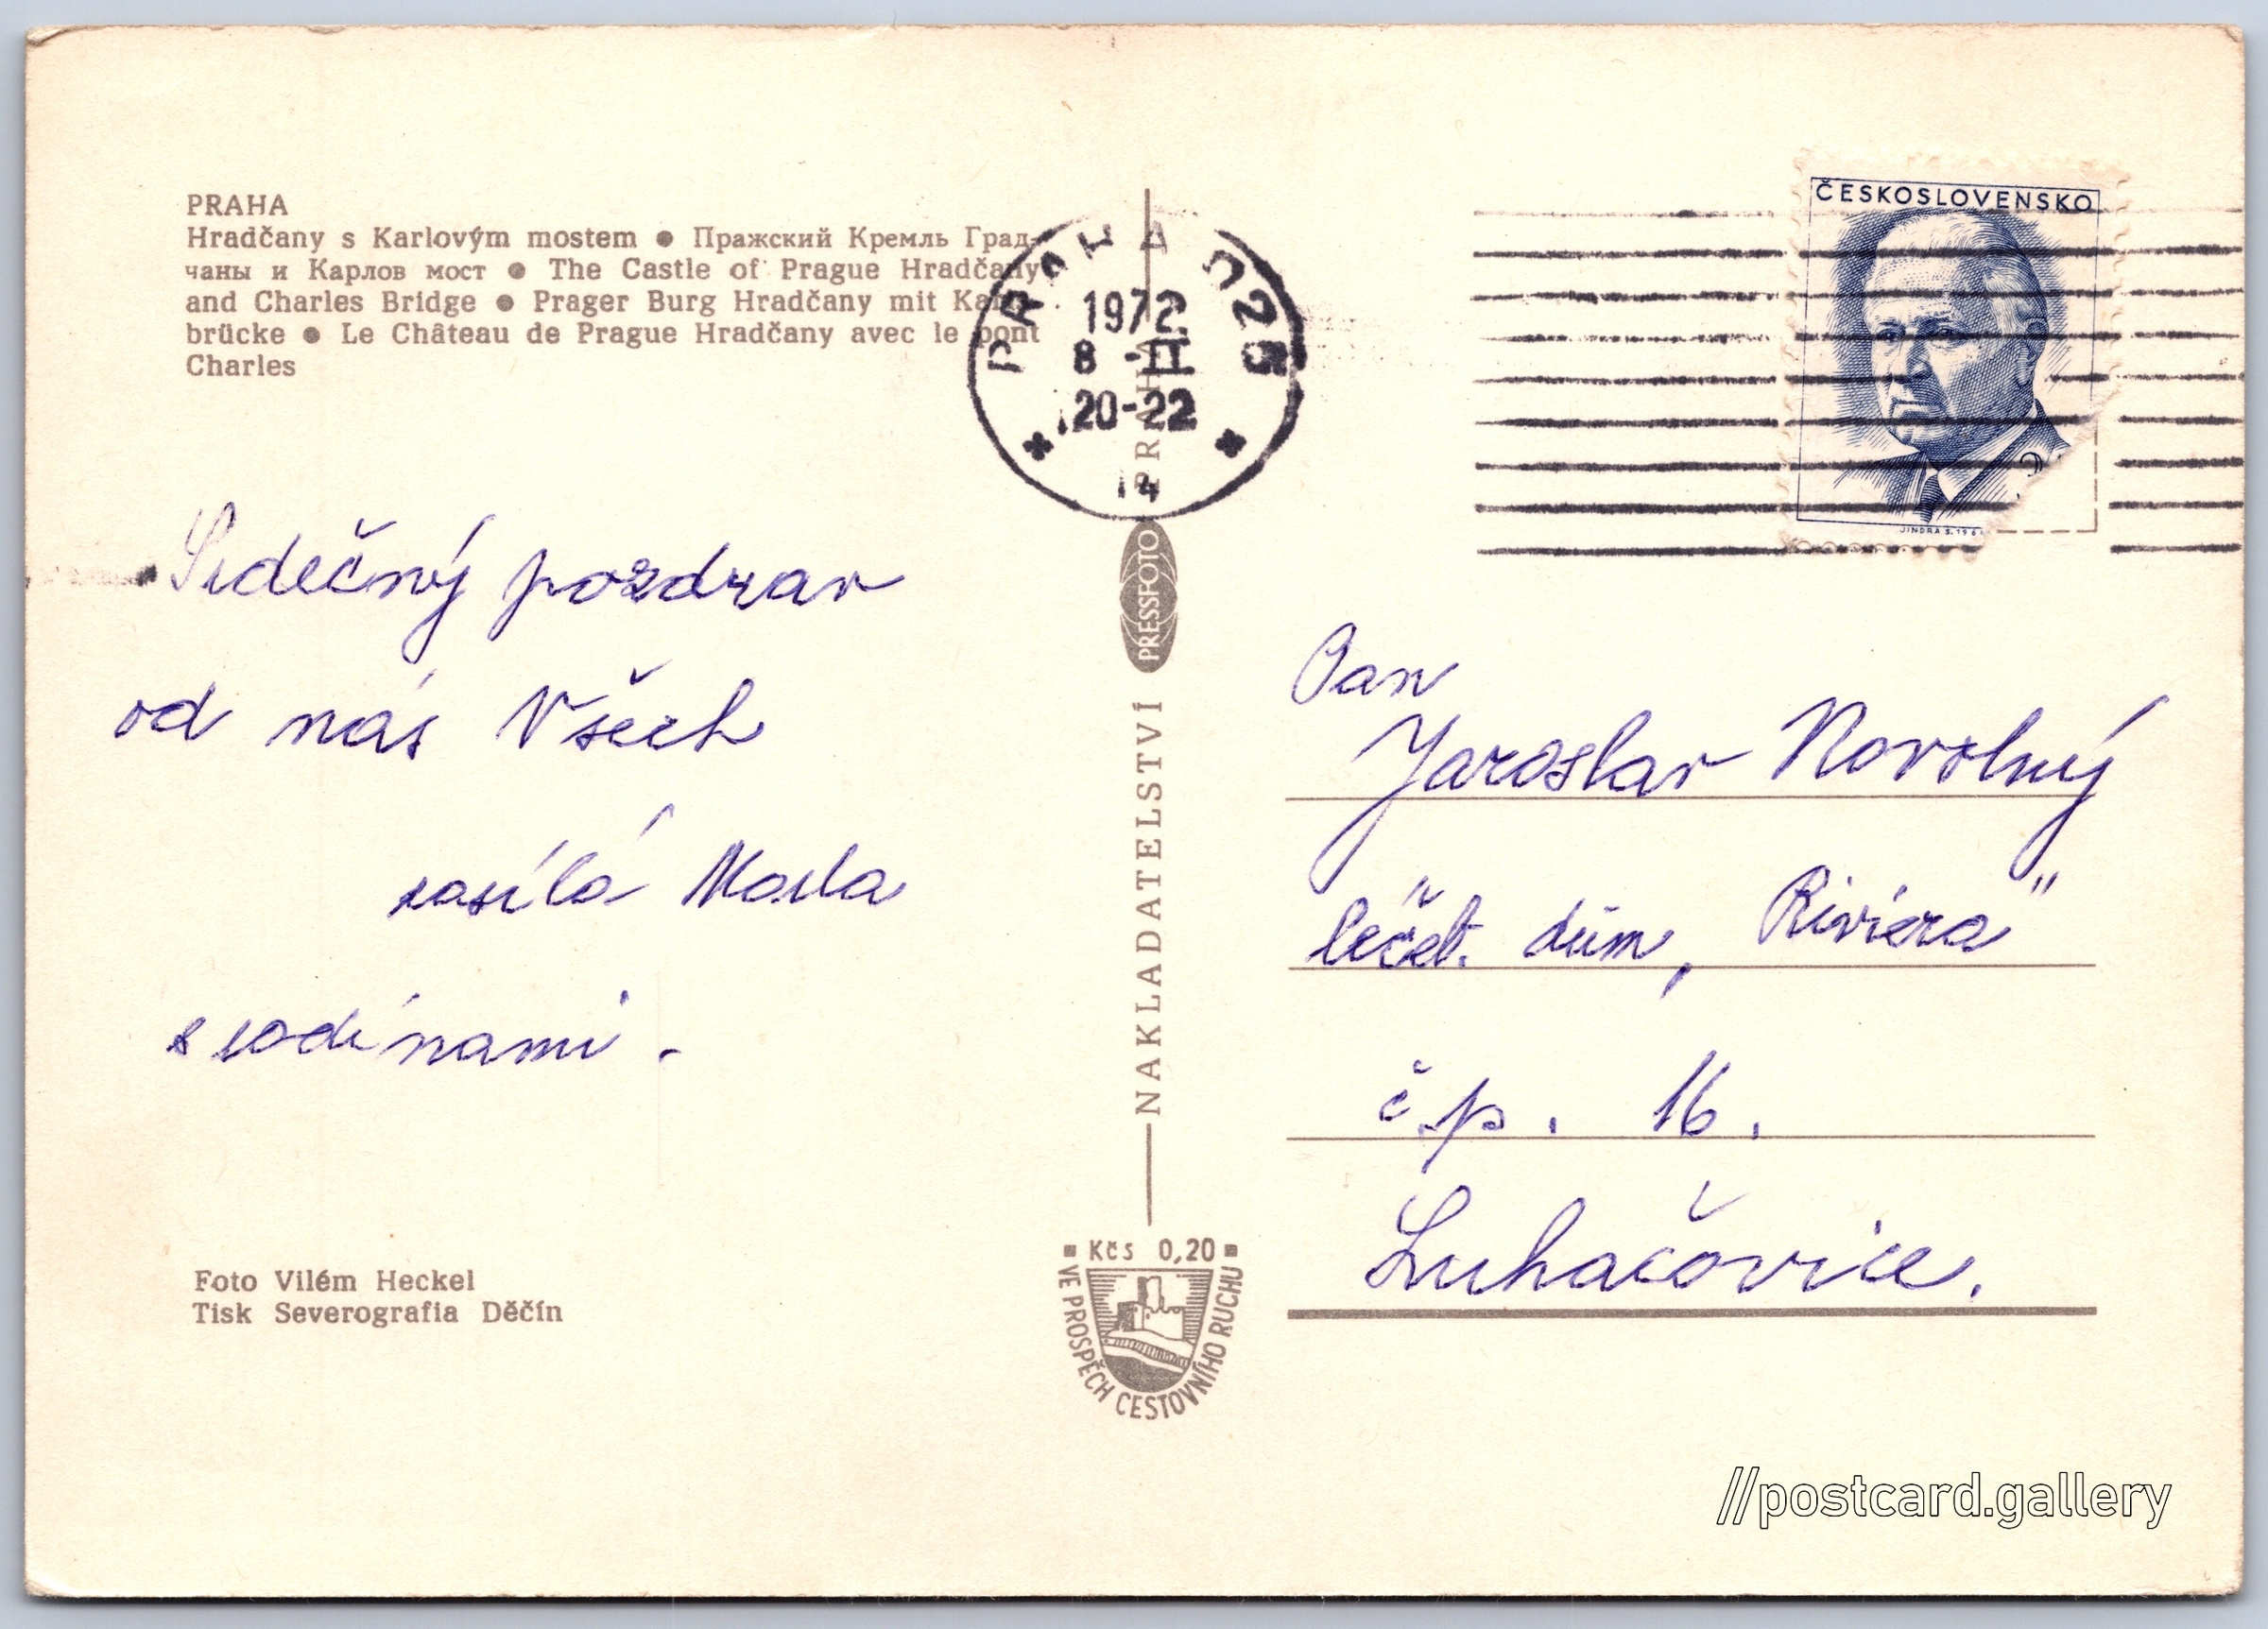 PRAHA
Hradčany s Karlovým mostem ● Пражский Кремль Град-
чаны и Карлов мост ● The Castle of Prague Hradčany
and Charles Bridge ● Prager Burg Hradčany mit Karls-
brücke ● Le Château de Prague Hradčany avec le pont
Charles
Srdečný pozdrav
od nás Všech
zasílá
s rodinami.
Foto Vilém Heckel
Tisk Severografia Děčín
PRAHA 025
1972
8 -II
20-22
14
NAKLADATELSTVÍ PRESSFOTO PRAHA
■ Kčs 0,20 ■
VE PROSPĚCH CESTOVNÍHO RUCHU
ČESKOSLOVENSKO
JINDRA S. 196
Pan
Jaroslav Novotný
léčeb. dům „Riviera"
čp. 16.
Luhačovice.
//postcard.gallery